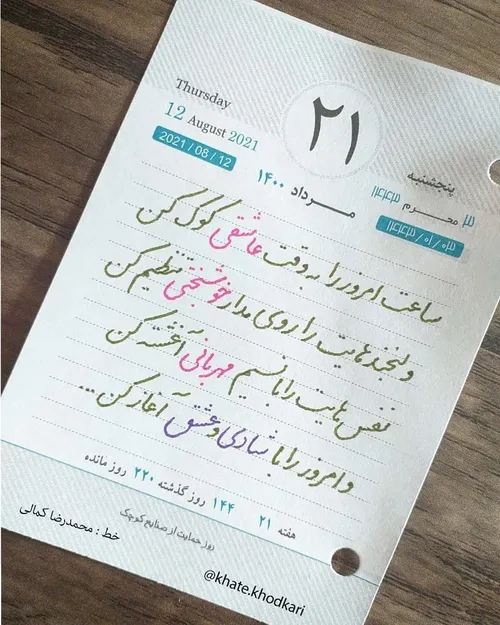 Thursday
12 August 2021
2021 / 08 / 12
۲۱
مرداد ۱۴۰۰
پنجشنبه
۳ محرم ۱۴۴۳
۱۴۴۳ / ۰۱ / ۰۳
ساعت امروز را به وقت عاشقی کوک کن
و لبخندهایت را روی مدار خوشبختی تنظیم کن
نفس‌هایت را با نسیم مهربانی آغشته کن
و امروز را با شادی و عشق آغاز کن...
هفته ۲۱ ۱۴۴ روز گذشته ۲۲۰ روز مانده
روز حمایت از صنایع کوچک
خط : محمدرضا کمالی
@khate.khodkari